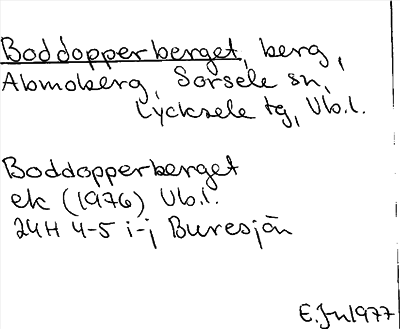 Boddopperberget, berg,
Abmoberg, Sorsele sn,
Lycksele tg, Vb.l.
Boddopperberget
ek (1976) Vb.l.
24H 4-5 i-j Buresjön
E.Jn 1977